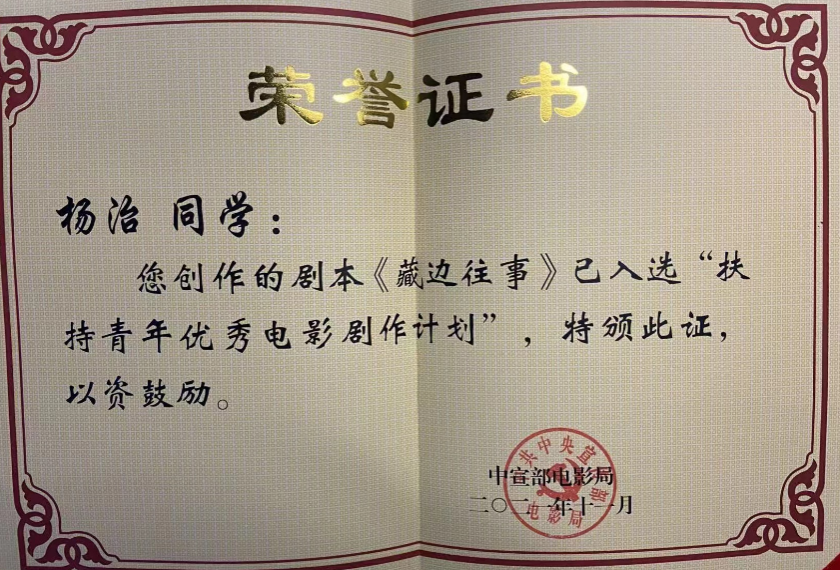 荣誉证书
杨治 同学：
您创作的剧本《藏边往事》已入选“扶
持青年优秀电影剧作计划”，特颁此证，
以资鼓励。
中宣部电影局
二〇二一年十一月
共中央宣
部
电影局